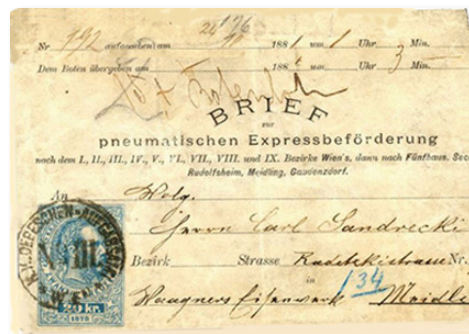 Nr 792 aufgegeben am 24/12 6 1881 um 1 Uhr 3 Min.
Dem Boten übergeben am 188 um Uhr Min.
BRIEF
zur
pneumatischen Expressbeförderung
nach dem I., II., III., IV., V., VI., VII., VIII. und IX. Bezirke Wien's, dann nach Fünfhaus, Sec
Rudolfsheim, Meidling, Gaudenzdorf.
An Wolg.
Herrn Carl Sandrecki
Bezirk Strasse Radetzkistrasse Nr.
in 134
Waagners Eisenwerk Meidl
K.K. DEPESCHEN-AUFGABSAMT
WIEN
20 kr.
1873